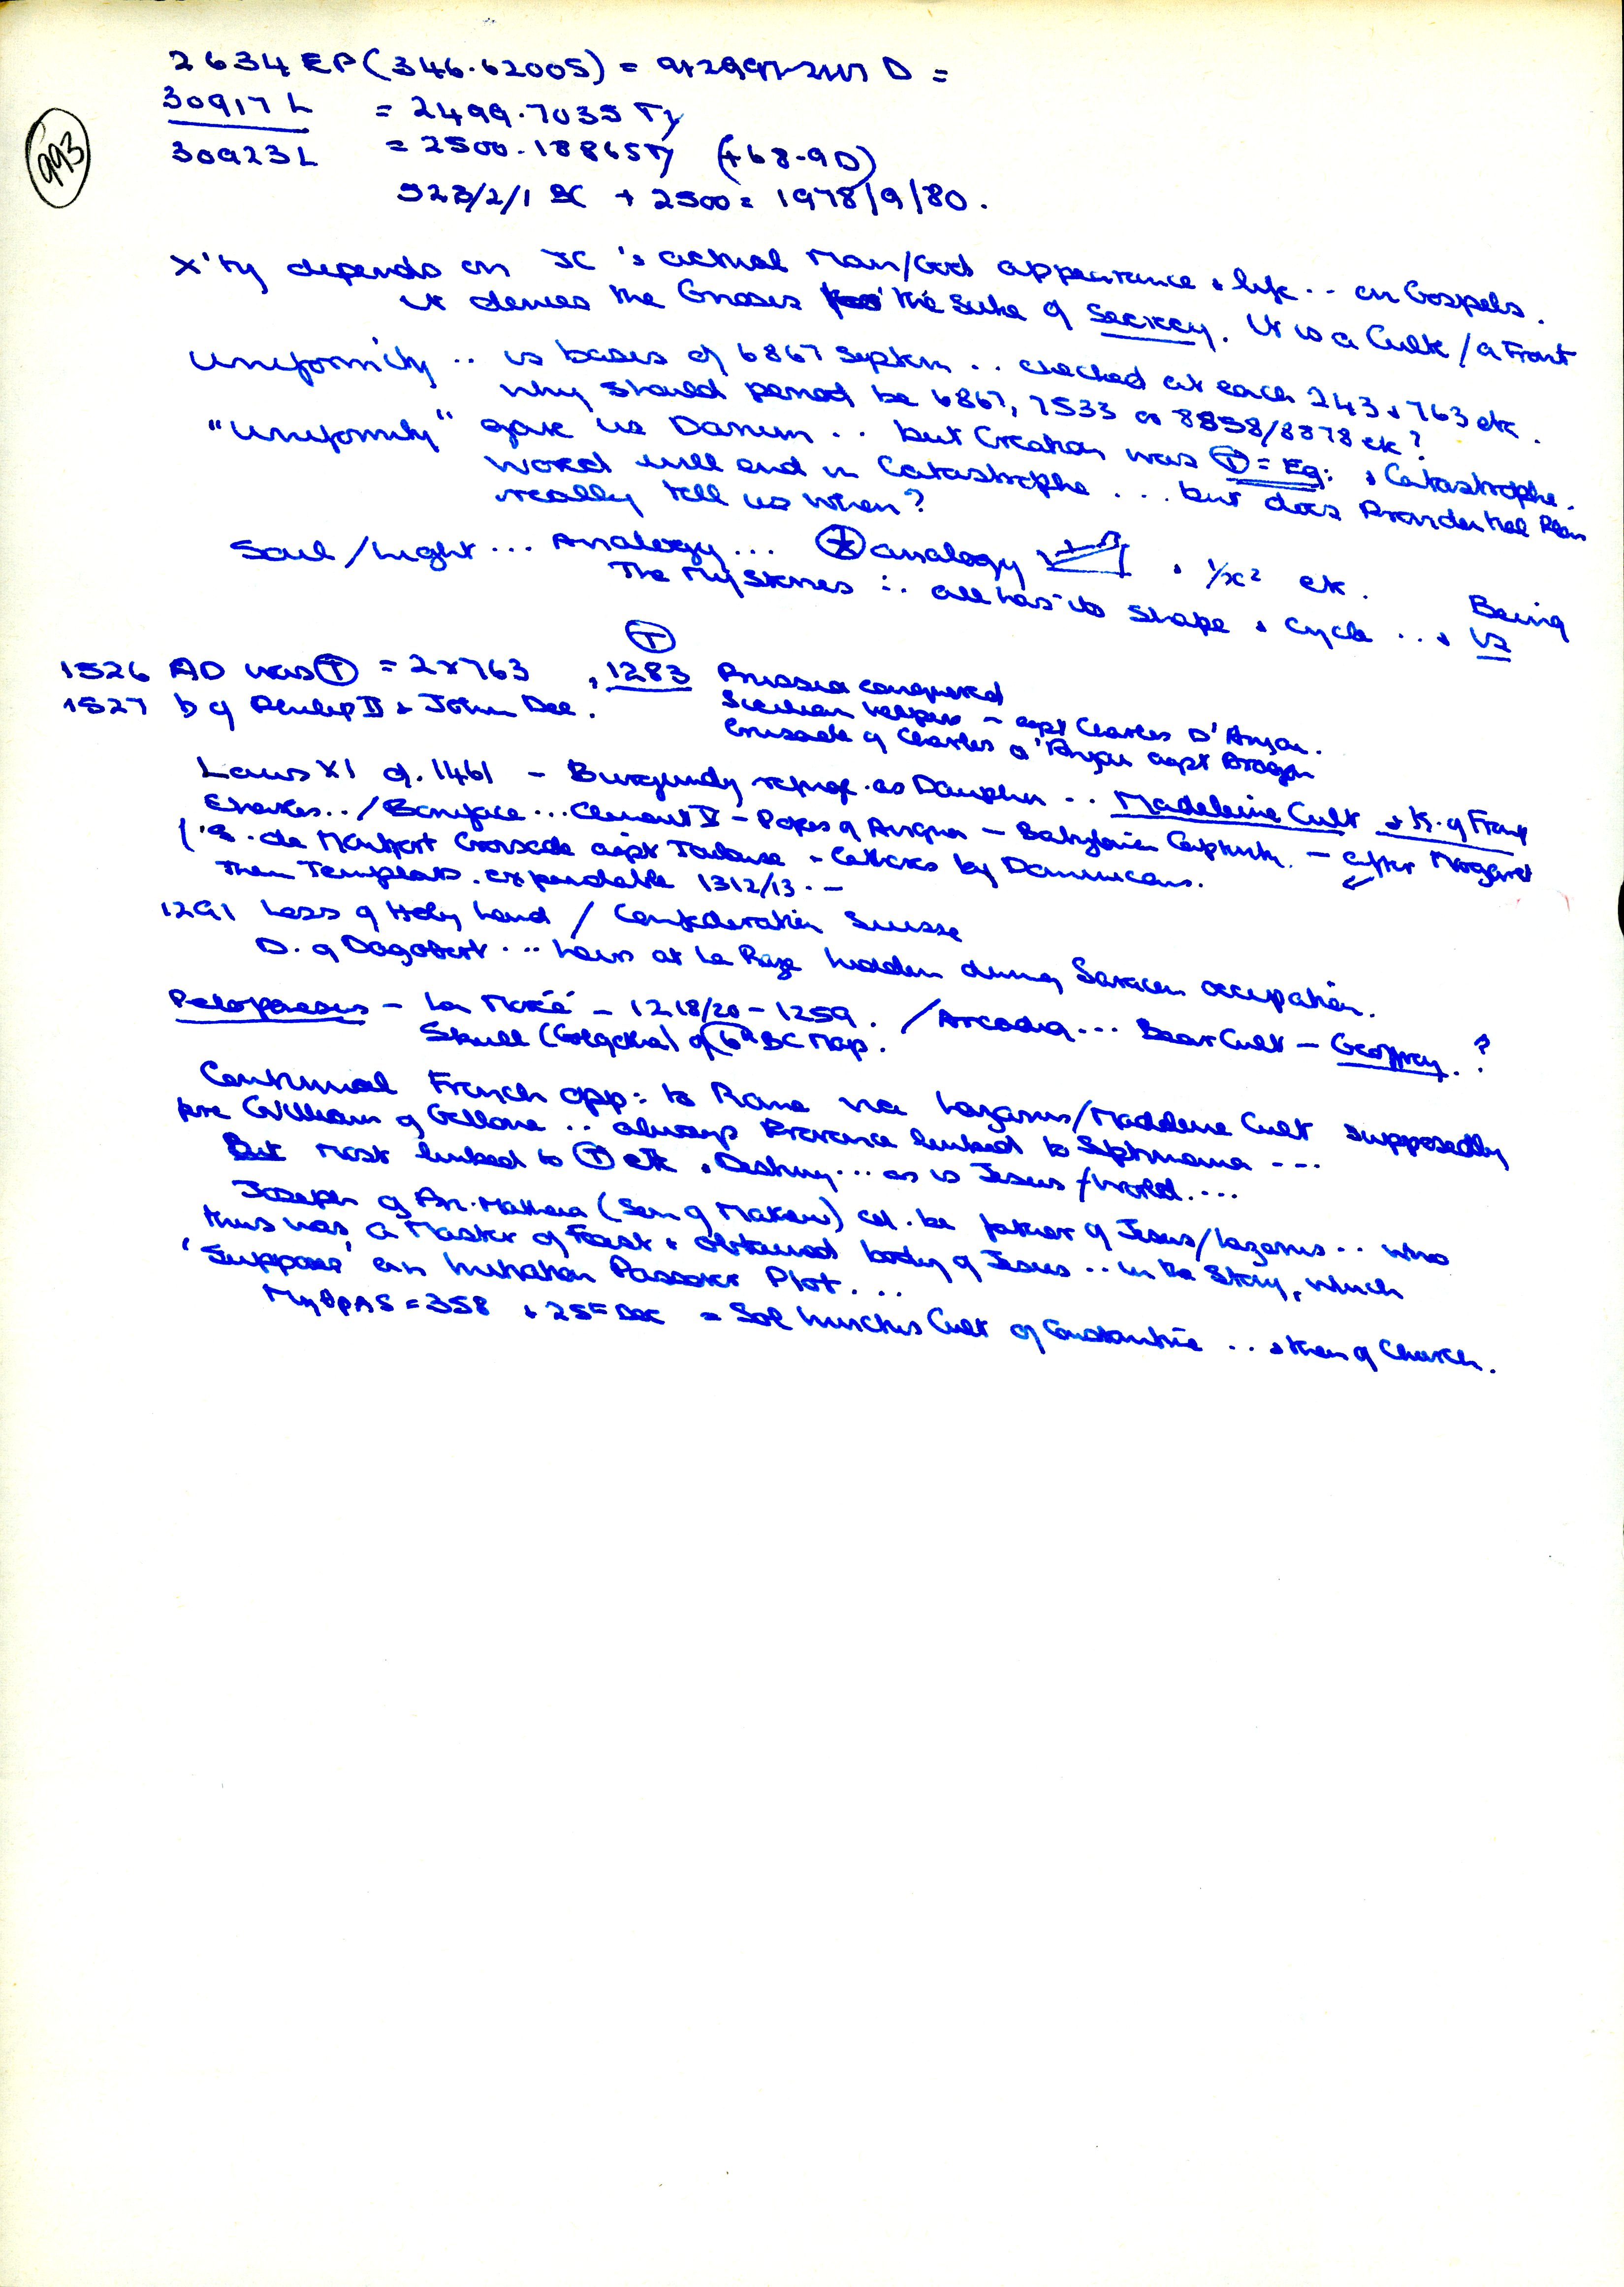 993
2634 EP (346.62005) = D =
30917 L = 2499.7035 Ty
30923 L = 2500.18865 Ty (+68-9D)
523/2/1 BC + 2500 = 1978/9/80.
X'ty depends on JC's actual Man/God appearance & life .. on Gospels.
It denies the Gnosis for the sake of Secrecy. It is a Cult / a Front
Uniformity .. is basis of 6867 System .. checked at each 243 & 763 etc.
why should period be 6867, 7533 or 8898/8878 etc?
"Uniformity" gave us Darwin .. but Creation was T = Eq: & Catastrophe.
World will end in Catastrophe ... but does Providential Plan
really tell us when?
Soul / Light ... Analogy ... analogy , 1/x² etc.
The Mysteries :. all has its shape & cycle ... & Being
vs
T
1526 AD was T = 2x763 , 1283 Prussia conquered
1527 b of Philip II & John Dee. Sicilian Vespers - agst Charles D'Anjou.
Crusade of Charles d'Anjou agst Aragon
Louis XI d. 1461 - Burgundy refuge as Dauphin .. Madeleine Cult & K. of France
.. / Boniface ... Clement V - Popes of Avignon - Babylonian Captivity. - after Margaret
('S. de Montfort Crusade agst Toulouse - Cathars by Dominicans.
Then Templars. expendable 1312/13. -
1291 Loss of Holy Land / Confederation Suisse
D. of Dagobert ... heirs at La Raze hidden during Saracen occupation.
Peloponesus - La Morée - 1218/20 - 1259. / Arcadia ... Bear Cult - Geoffrey. ?
Skull (Golgotha) of 6th BC Map.
Continual French opp: to Rome via Lazarus/Madelene Cult supposedly
pre William of Gellone .. always Provence linked to Septimania ---
But most linked to T etc & Destiny ... as is Jesus / World ....
Joseph of Ari.Mathea (Son of Mathew) cd. be father of Jesus/Lazarus .. who
thus was a Master of Feast & obtained body of Jesus .. in the Story, which
'Suppose' an Initiation Passover Plot ...
= 358 & 25th Dec = Sol Invictus Cult of Constantine .. & then of Church.